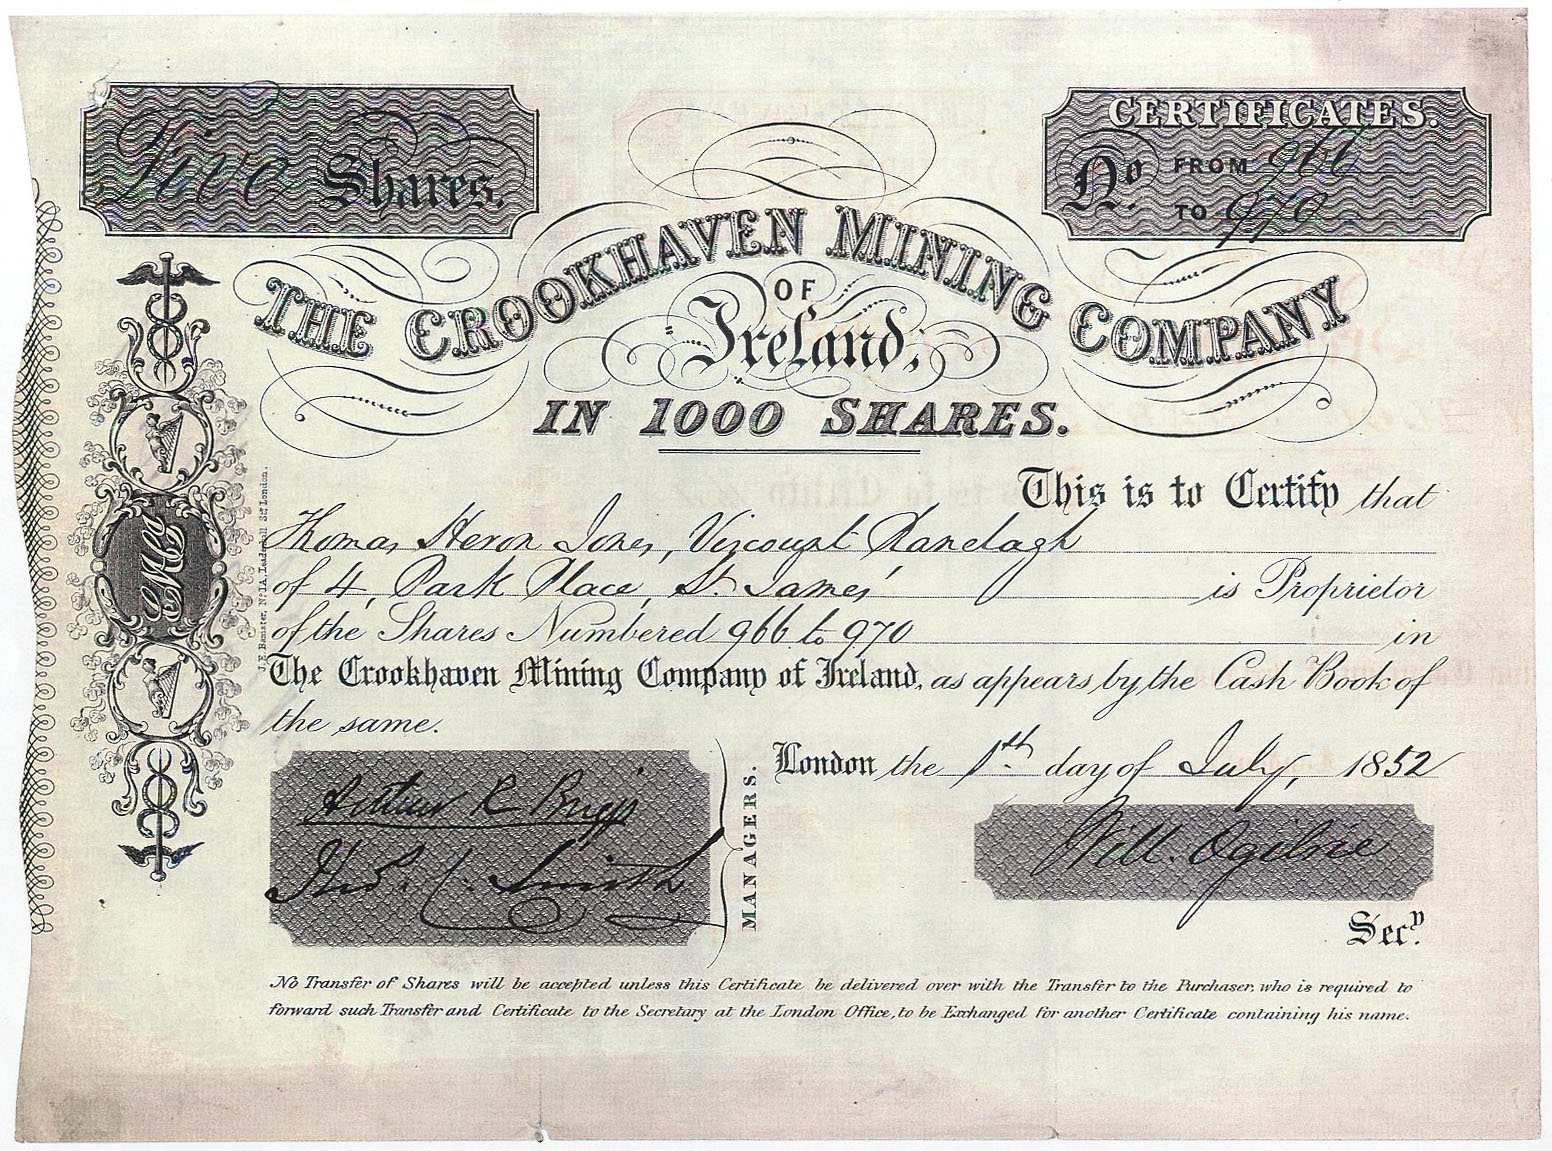 Five Shares.
CERTIFICATES.
No. FROM 966
TO 970
THE CROOKHAVEN MINING COMPANY
OF
Ireland,
IN 1000 SHARES.
This is to Certify that
Thomas Heron Jones, Viscount Ranelagh
of 4, Park Place, St. James' is Proprietor
of the Shares Numbered 966 to 970 in
The Crookhaven Mining Company of Ireland, as appears by the Cash Book of
the same.
London the 1th day of July, 1852
Arthur R Briggs
Thos. C. Smith
MANAGERS.
Will. Ogilvie
Secy.
No Transfer of Shares will be accepted unless this Certificate be delivered over with the Transfer to the Purchaser, who is required to
forward such Transfer and Certificate to the Secretary at the London Office, to be Exchanged for another Certificate containing his name.
CMCo
J. E. Banister, No. 1A, Leadenhall St. London.